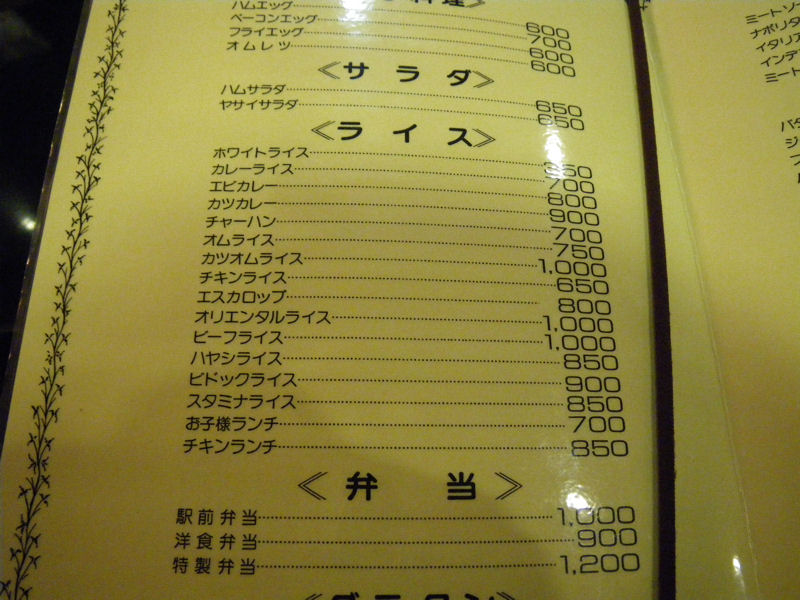 料理》
ハムエッグ 600
ベーコンエッグ 700
フライエッグ 600
オムレツ 600
《サラダ》
ハムサラダ 650
ヤサイサラダ 650
《ライス》
ホワイトライス
カレーライス 700
エビカレー 800
カツカレー 900
チャーハン 700
オムライス 750
カツオムライス 1,000
チキンライス 650
エスカロップ 800
オリエンタルライス 1,000
ビーフライス 1,000
ハヤシライス 850
ビドックライス 900
スタミナライス 850
お子様ランチ 700
チキンランチ 850
《弁当》
駅前弁当 1,000
洋食弁当 900
特製弁当 1,200
《グラタン》
ミートソ
ナポリタ
イタリア
インデ
ミート
バタ
ジ